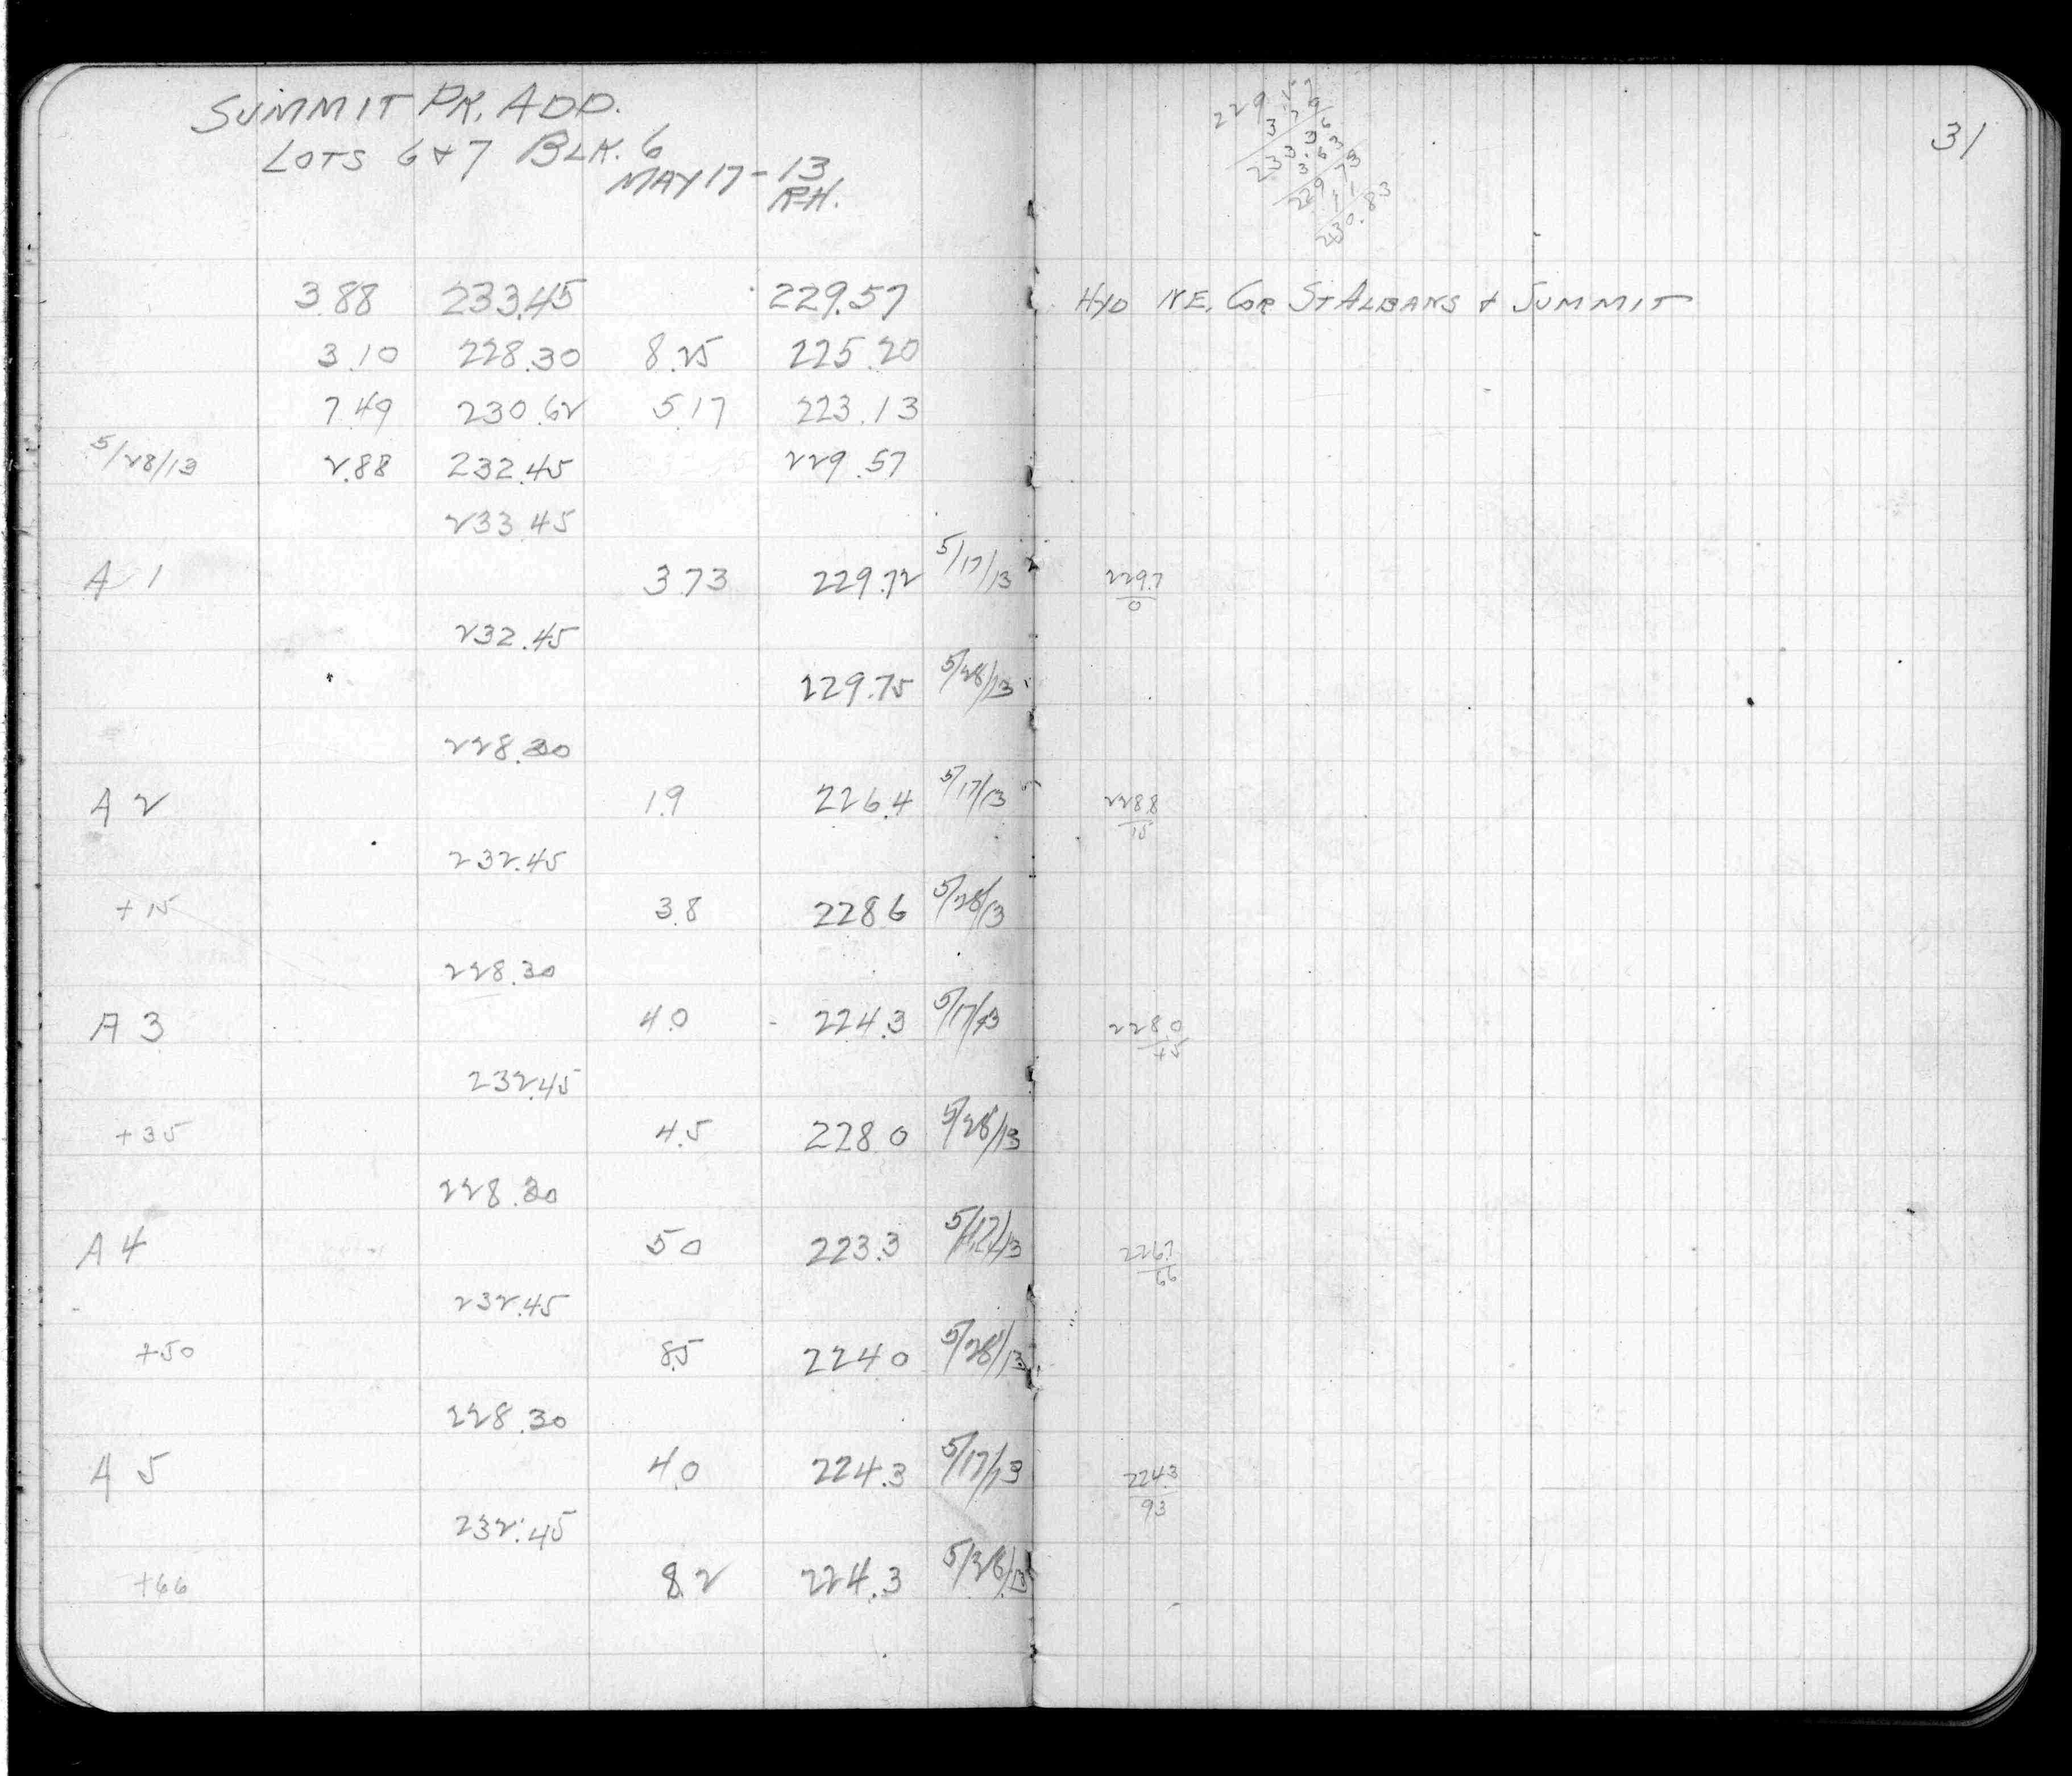 SUMMIT PK. ADD.
LOTS 6 & 7 BLK. 6
MAY 17-13
R.H.
3.88 233.45 229.57
3.10 228.30 8.25 225.20
7.49 230.62 5.17 223.13
5/28/13 2.88 232.45 229.57
233.45
A 1 3.73 229.72 5/17/13
232.45
229.75 5/28/13
228.30
A 2 1.9 226.4 5/17/13
232.45
+15 3.8 228.6 5/28/13
228.30
A 3 4.0 224.3 5/17/13
232.45
+35 4.5 228.0 5/28/13
228.30
A 4 5.0 223.3 5/17/13
232.45
+50 8.5 224.0 5/28/13
228.30
A 5 4.0 224.3 5/17/13
232.45
+66 8.2 224.3 5/28/13
31
3.79
233.36
3.63
229.73
1.1
230.83
HYD N.E. COR ST ALBANS & SUMMIT
229.7
0
228.8
15
228.0
226.7
66
224.3
93